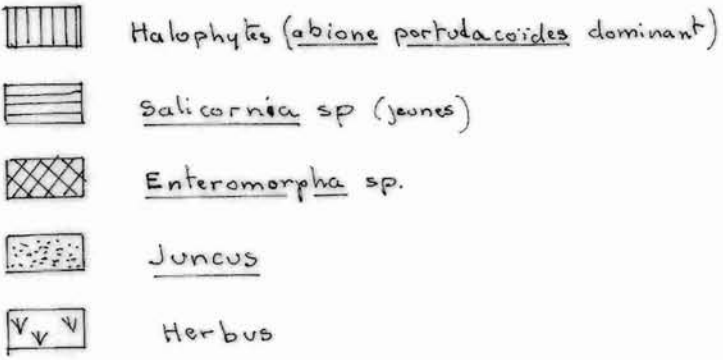 Halophytes (abione portulacoïdes dominant)
Salicornia sp (jeunes)
Enteromorpha sp.
Juncus
Herbus